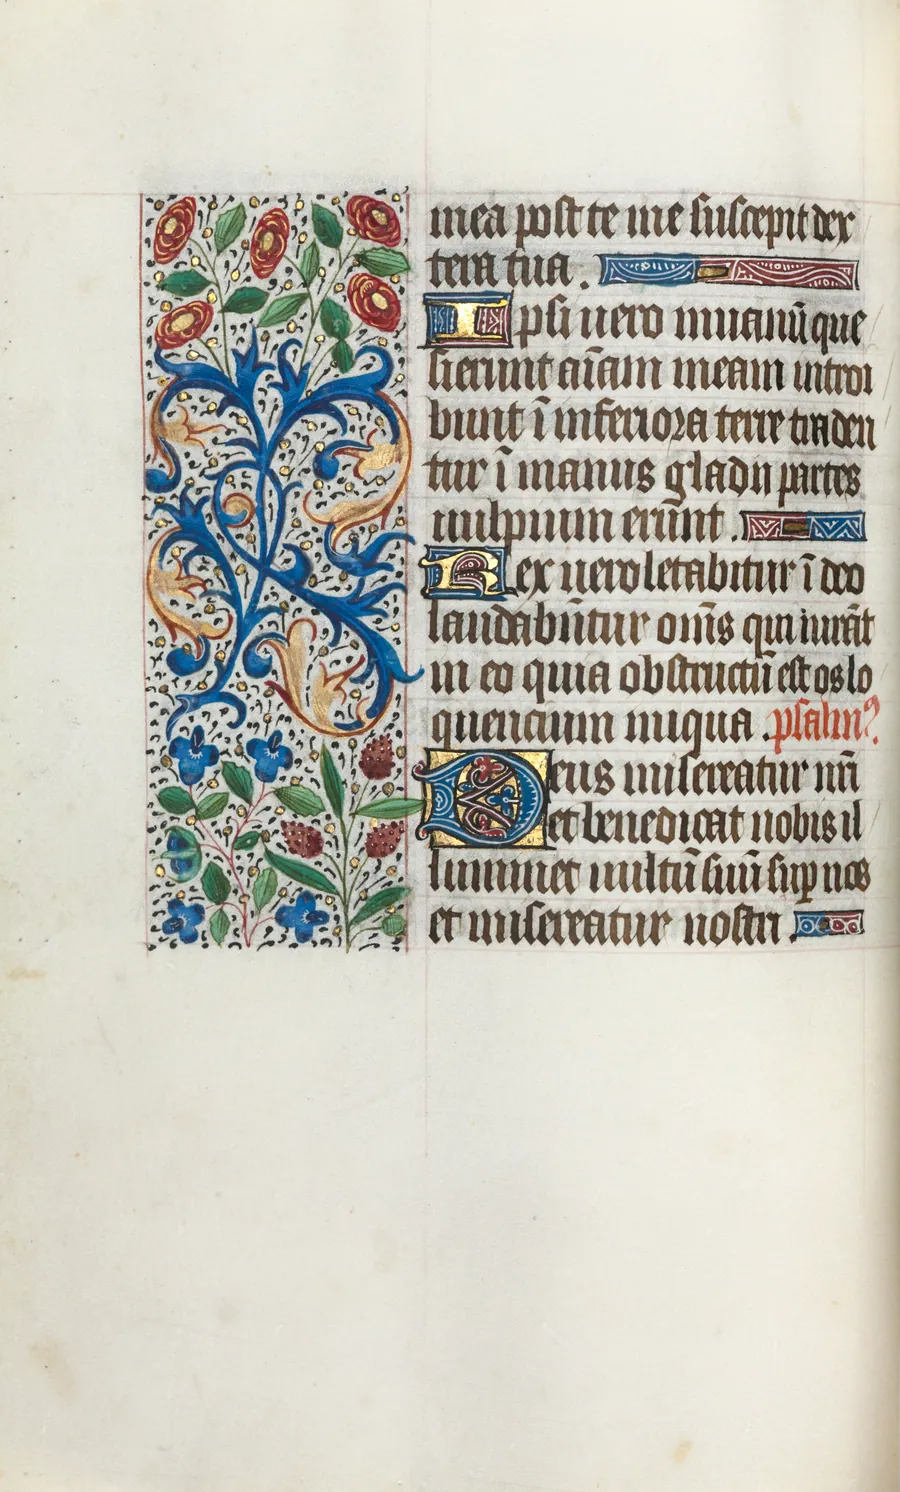 mea post te me suscepit dex
tera tua.
Ipsi uero in uanū que
sierunt aīam meam introi
bunt ī inferiora terre traden
tur ī manus gladii partes
uulpium erūnt.
Rex uero letabitur ī deo
laudabūntur om̄s qui iurāt
in eo quia obstructū est os lo
quencium iniqua. psalm⁹.
Deus misereatur nr̄i
et benedicat nobis il
luminet uultū suū sup nos
et misereatur nostri.